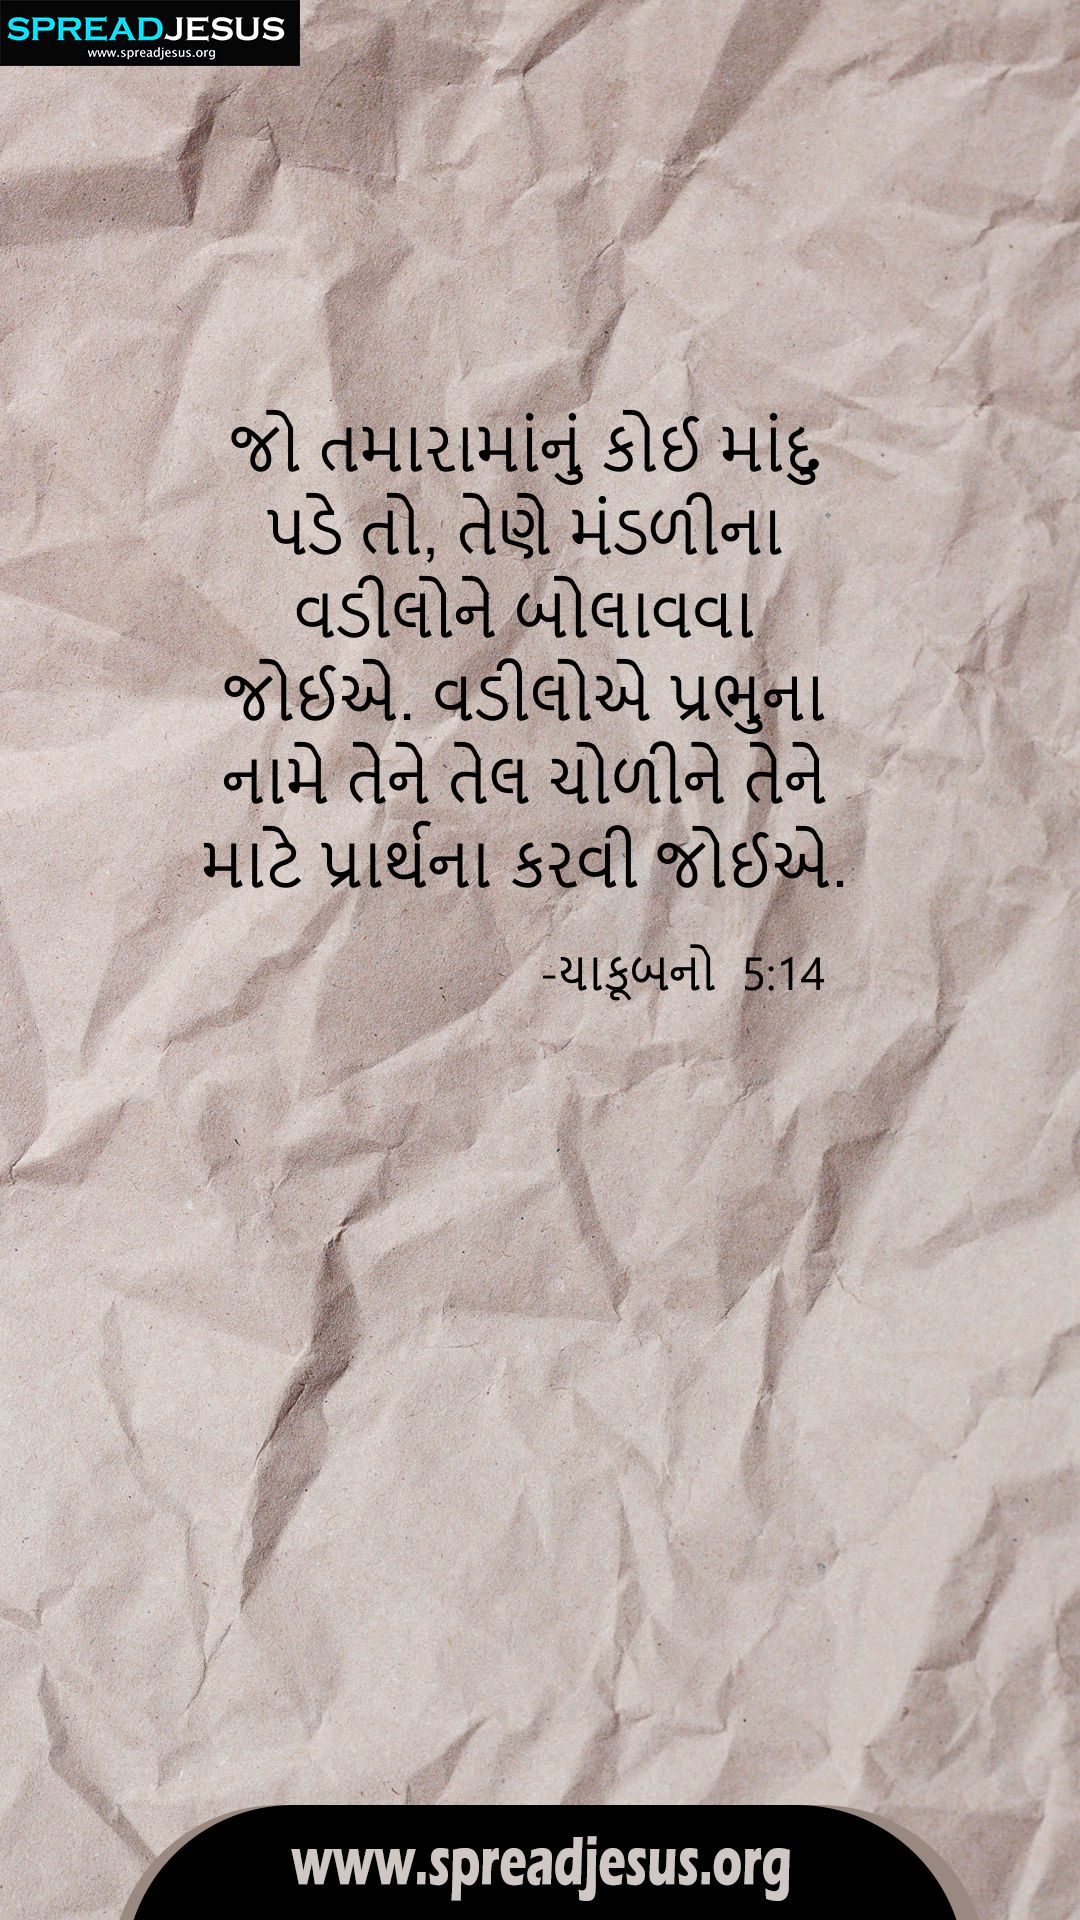 SPREADJESUS
www.spreadjesus.org
જો તમારામાંનું કોઈ માંદુ
પડે તો, તેણે મંડળીના
વડીલોને બોલાવવા
જોઈએ. વડીલોએ પ્રભુના
નામે તેને તેલ ચોળીને તેને
માટે પ્રાર્થના કરવી જોઈએ.
-યાકૂબનો 5:14
www.spreadjesus.org